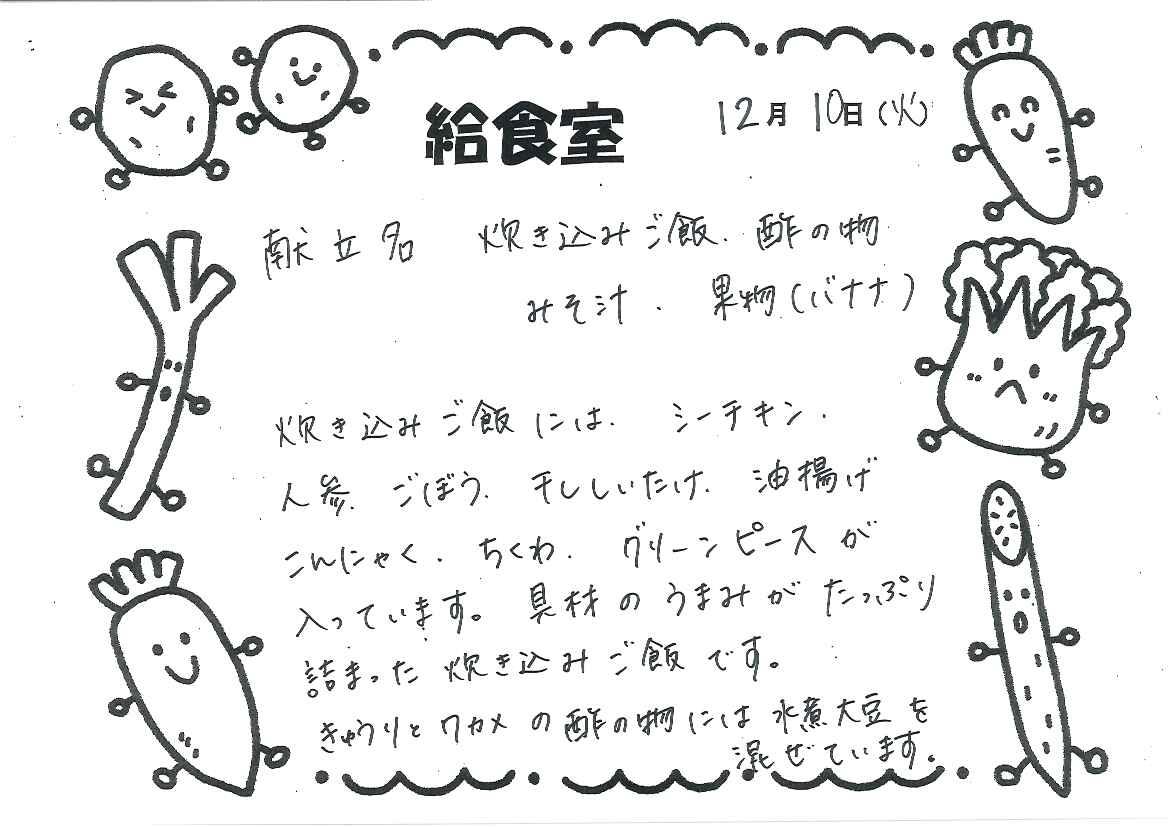 給食室
12月10日(火)
献立名 炊き込みご飯、酢の物
みそ汁、果物(バナナ)
炊き込みご飯には、シーチキン、
人参、ごぼう、干ししいたけ、油揚げ
こんにゃく、ちくわ、グリーンピースが
入っています。具材のうまみがたっぷり
詰まった炊き込みご飯です。
きゅうりとワカメの酢の物には水煮大豆を
混ぜています。